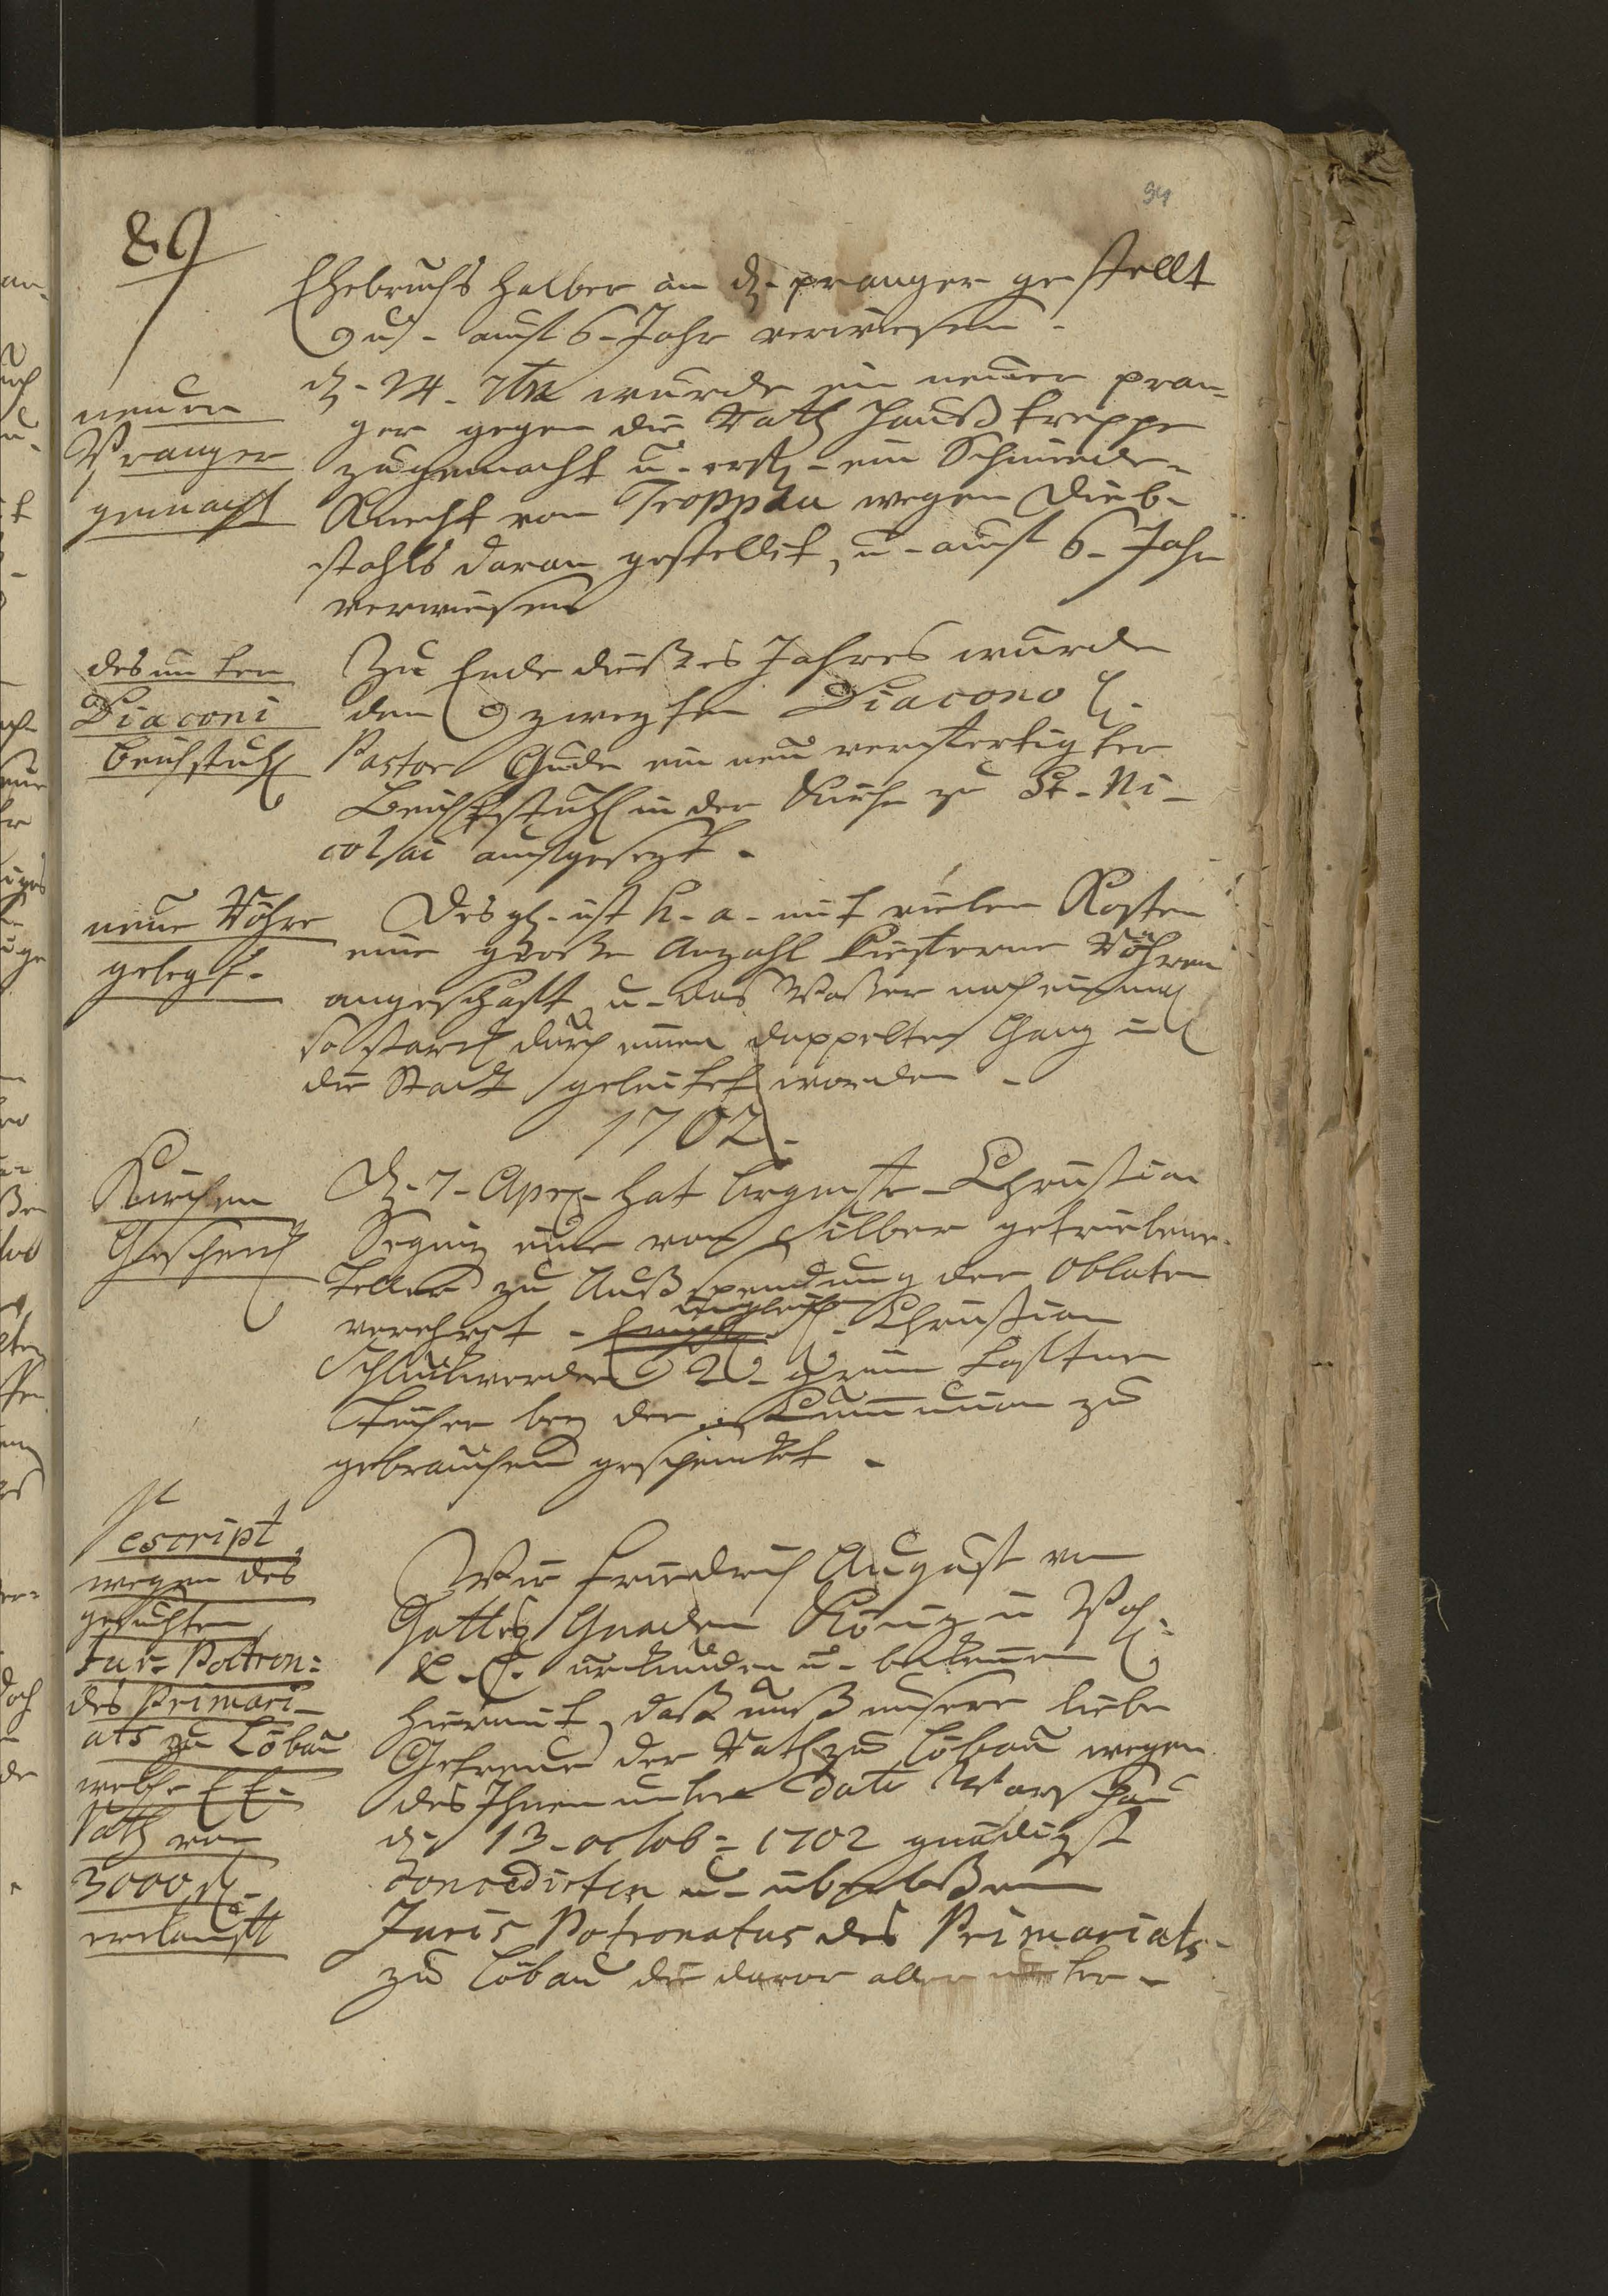 34
89
Ehebruchs halber an dn. pranger gestellt
u. auf 6. Jahr verwiesen.
neuen
Pranger
gemacht
dn. 24. 7bre wurde ein neuer pran-
ger gegen die Rath Hauß treppe
zu gemacht u. erstl. ein Schmiede-
Knecht von Troppau wegen Dieb-
stahls daran gestellet, u. auf 6. Jahr
verwiesen
des untern
Diaconi
beichstuhl
Zu Ende dießes Jahres wurde
den zweyten Diacono H.
Pastor Gude ein neu verfertigter
Beichtstuhl in der Kirche zu St. Ni-
colai aufgesezt.
neue Röhre
gelegt.
Desgl. ist h. a. mit vielen Kosten
eine große Anzahl Kieferne Röhren
angeschafft u. das Waßer noch einmal
so starck durch einen doppelten Gang in
die Stadt geleitet worden.
1702.
Kirchen
Geschenck
D. 7. Apr. hat brgmstr. Christian
Segnitz eine von Silber getriebene
teller zu Außspendung der Oblaten
verehret. ingleich H. Christian
2. grün
Tücher bey der Communion zu
gebrauchen geschenket.
Rescript
wegen des
gesuchten
Jur. Patron:
des Primari-
ats zu Löbau
welche E. E.
Rath vor
3000 rl.
erkaufft
Wir Friedrich August von
Gottes Gnaden König in Pohl.
&. C. urkunden u. bekennen
hiermit, daß unß unsere liebe
Getreue der Rath zu Löbau wegen
des Ihnen unter dato Warschau
dn 13. octob: 1702 gnädigst
concedirten u. überlaßenen
Juris Patronatus des Primariats
zu Löbau die davor aller unter-